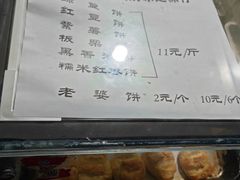 豆饼
红豆饼
紫薯饼
板栗饼
黑香米饼 11元/斤
糯米红枣饼
老婆饼 2元/个 10元/6个